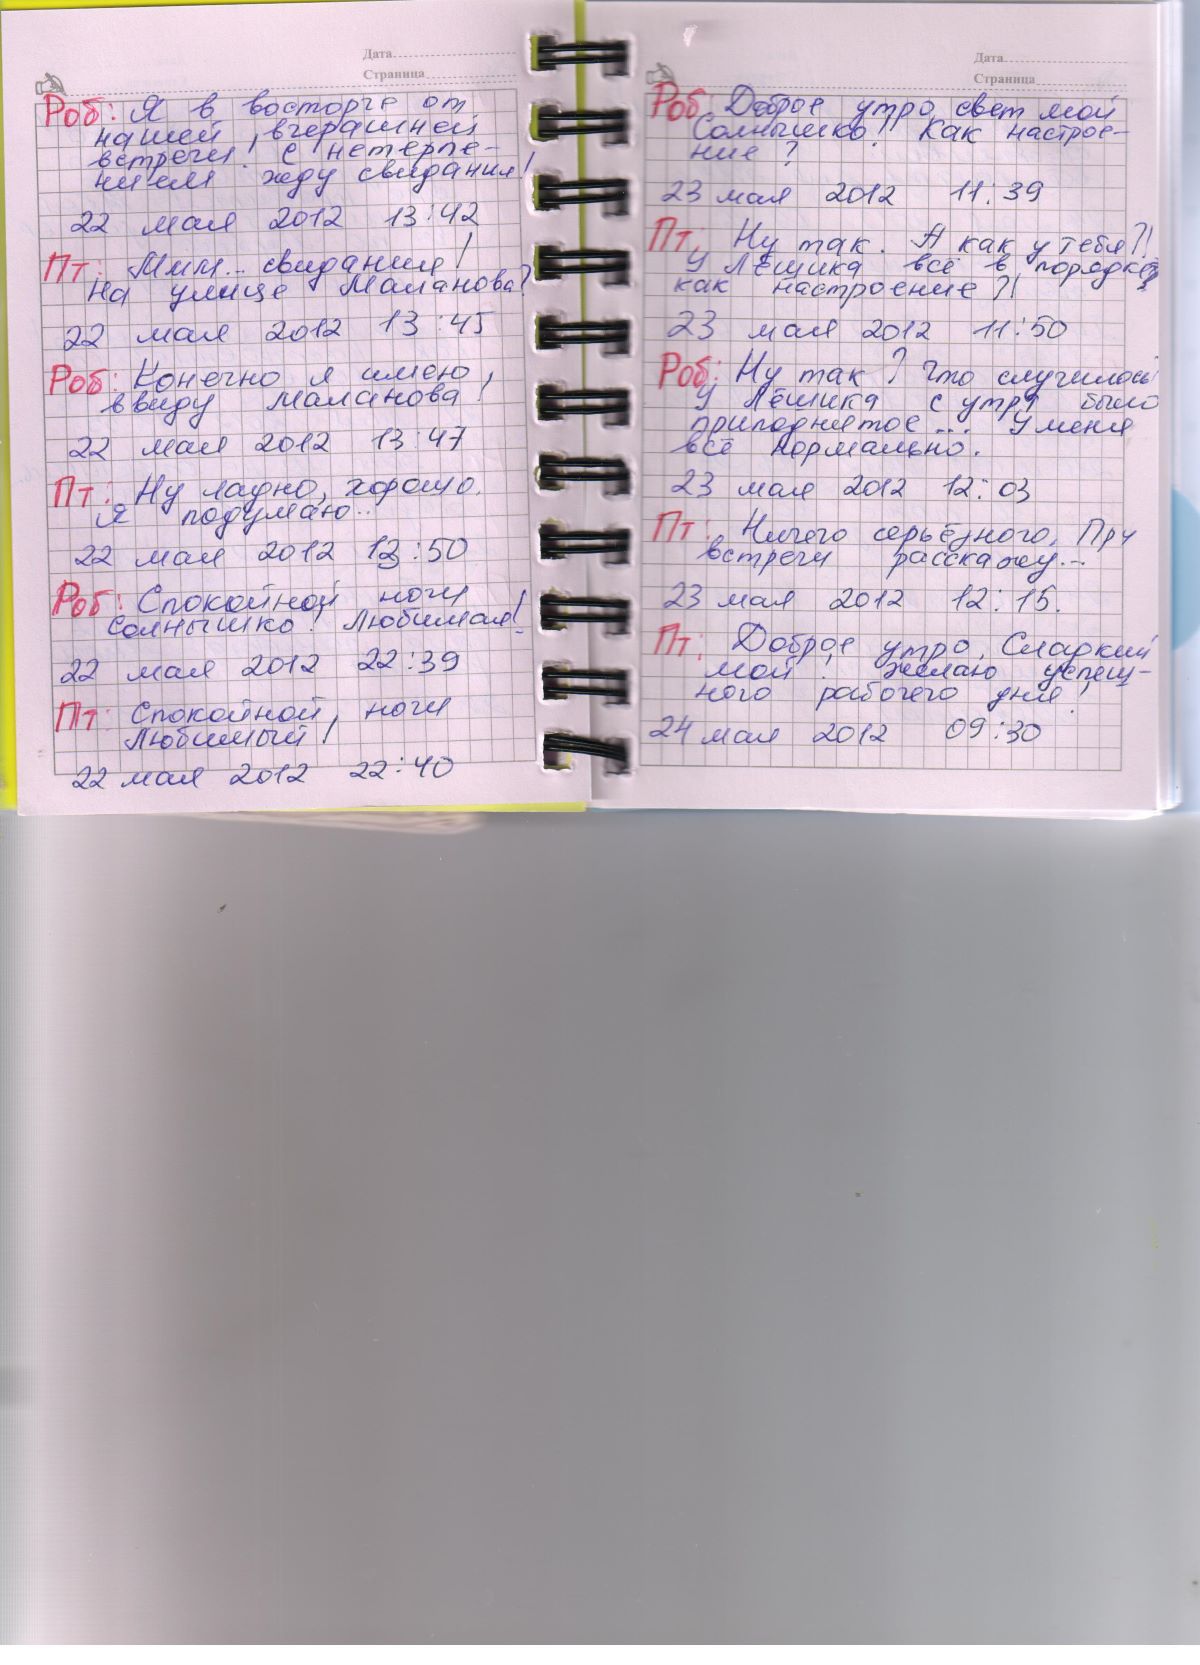 Дата
Страница
Роб: Я в восторге от
нашей вчерашней
встречи! С нетерпе-
нием жду свидания!
22 мая 2012 13:42
Пт: Ммм... свидания!
На улице Маланова?
22 мая 2012 13:45
Роб: Конечно я имею,
ввиду Маланова!
22 мая 2012 13:47
Пт: Ну ладно, хорошо.
Я подумаю...
22 мая 2012 13:50
Роб: Спокойной ночи
Солнышко! Любимая!
22 мая 2012 22:39
Пт: Спокойной, ночи
Любимый!
22 мая 2012 22:40
Дата
Страница
Роб: Доброе утро, свет мой
Солнышко! Как настрое-
ние?
23 мая 2012 11:39
Пт: Ну так. А как у тебя?!
У Лёшика всё в порядке,
как настроение?!
23 мая 2012 11:50
Роб: Ну так? Что случилось
У Лёшика с утра было
приподнятое... У меня
всё нормально.
23 мая 2012 12:03
Пт: Ничего серьёзного. При
встречи расскажу...
23 мая 2012 12:15.
Пт: Доброе утро, Сладкий
мой! Желаю успеш-
ного рабочего дня!
24 мая 2012 09:30